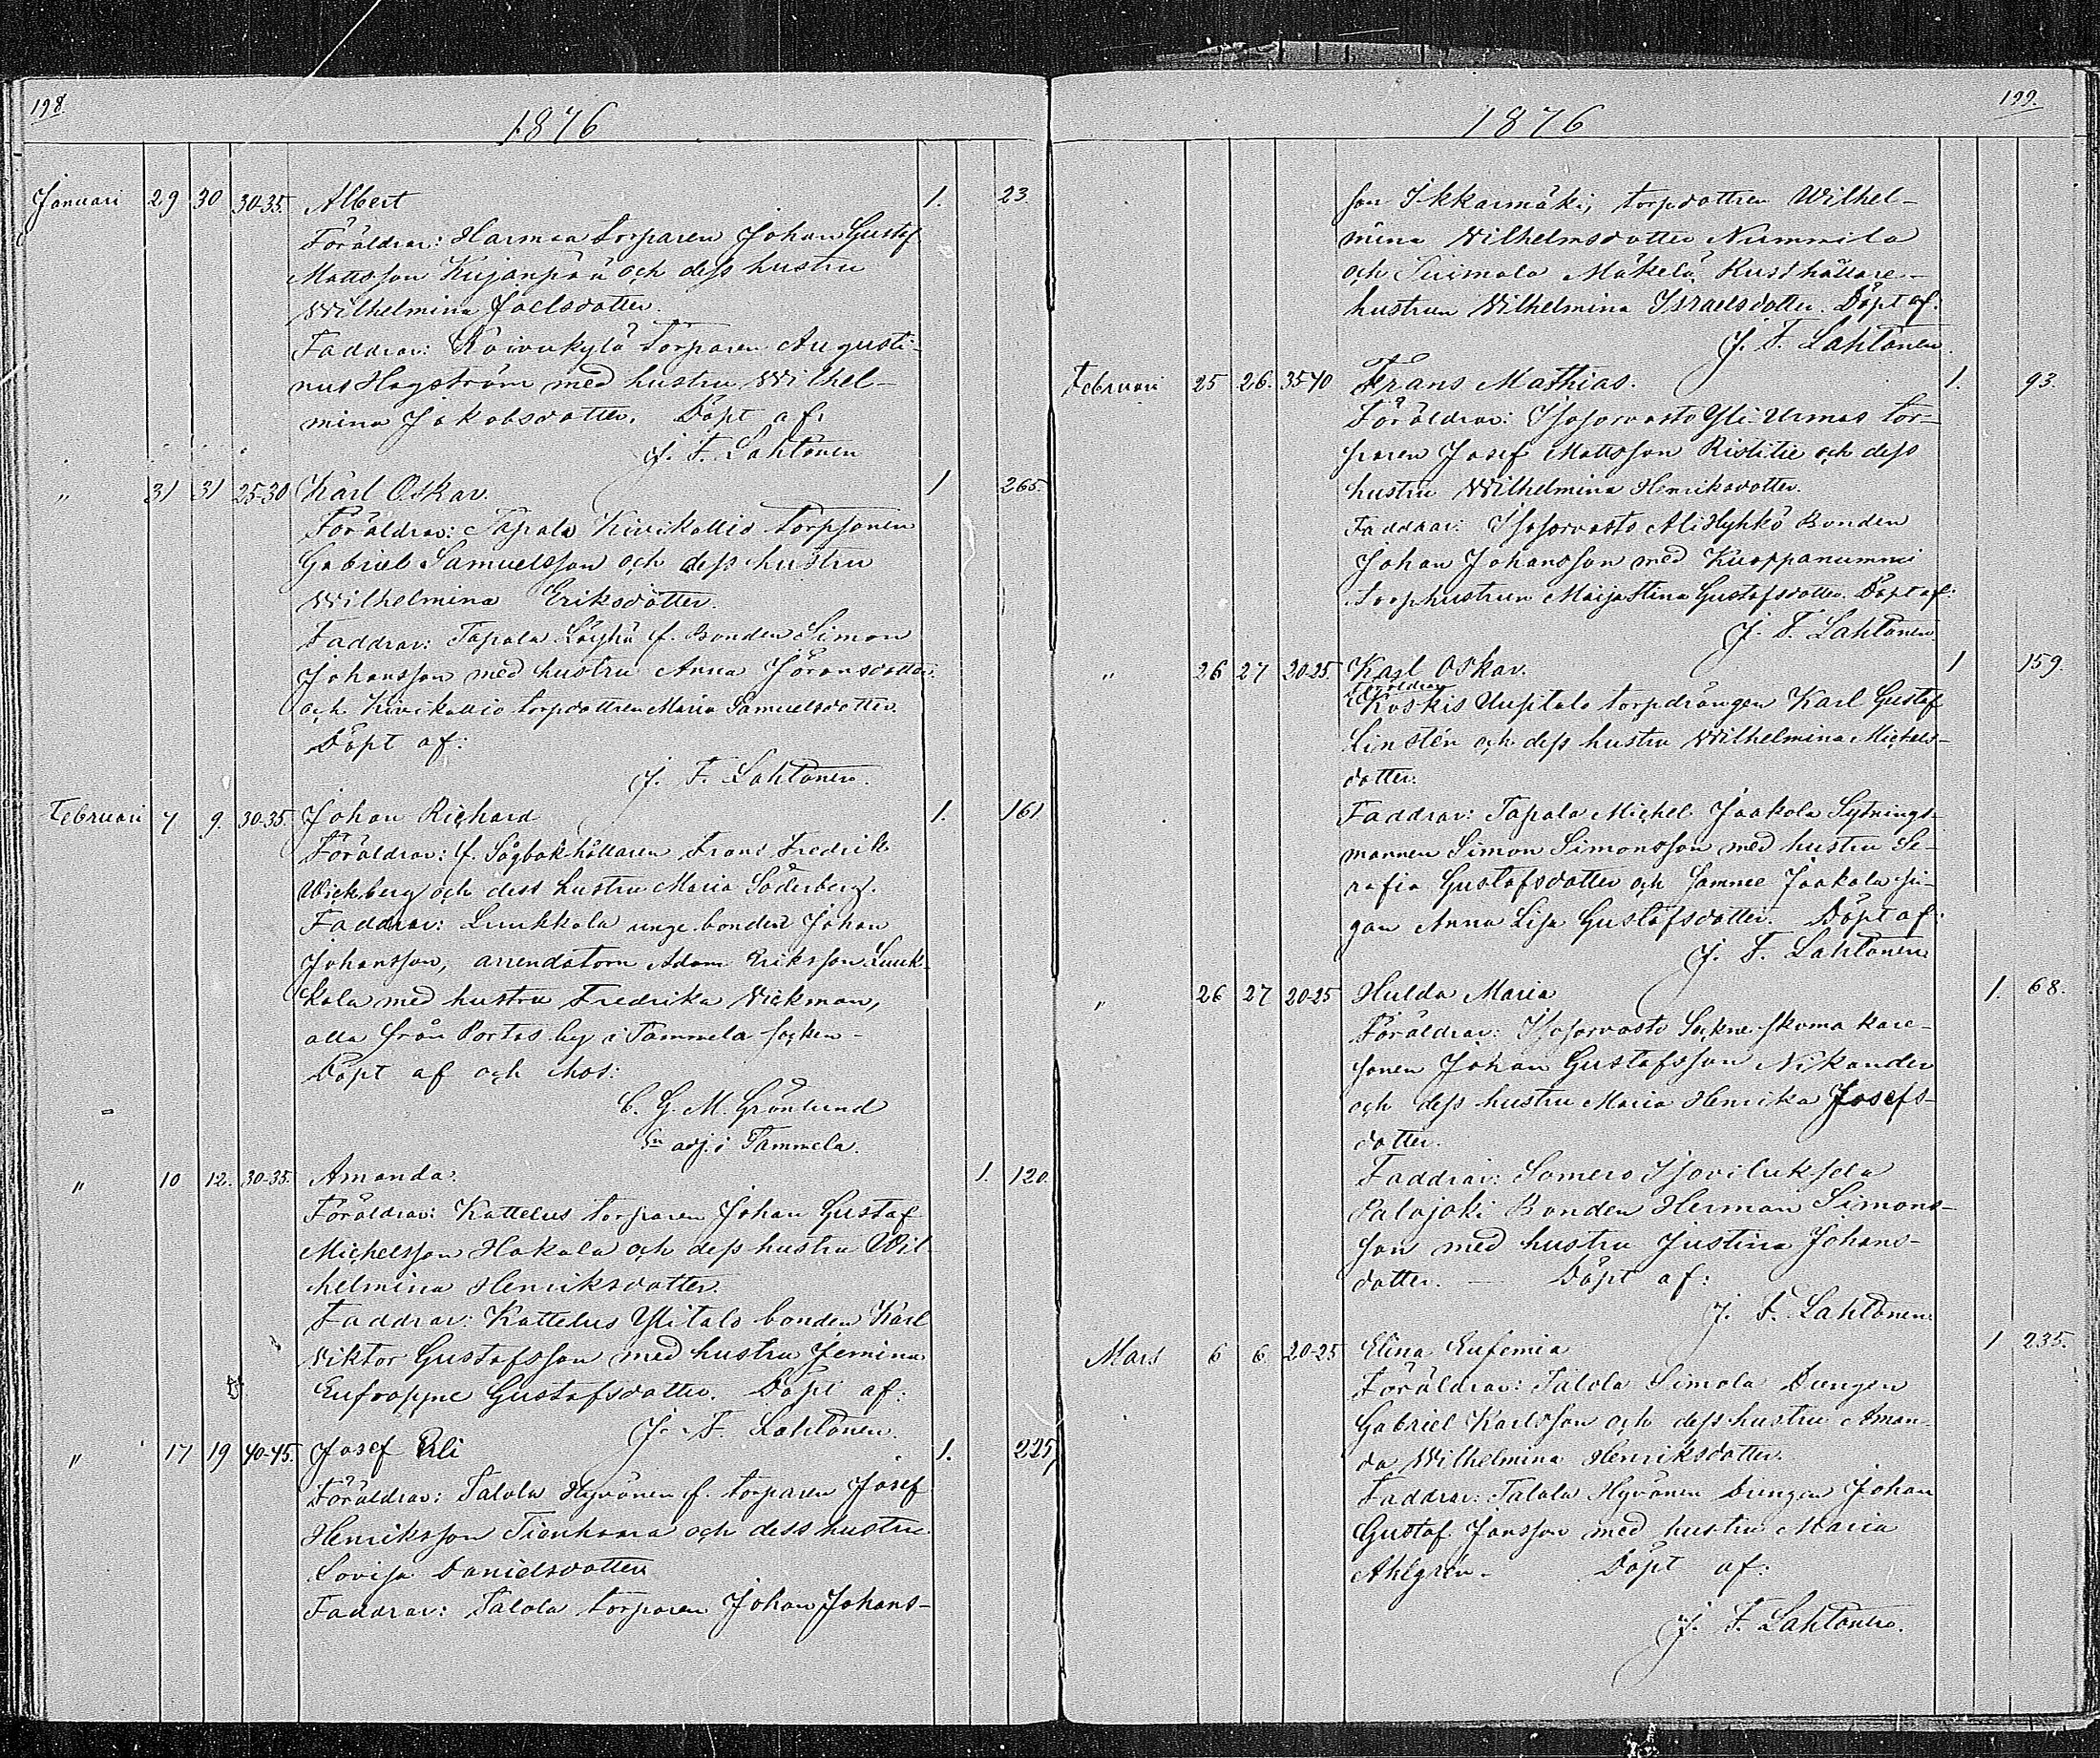 198.
1876
Januari 29 30 30-35. Albert 1. 23
Föräldrar: Harmaa torparen Johan Gustaf
Mattsson Kujanpää och dess hustru
Wilhelmina Joelsdotter.
Faddrar: Koivukylä torparen Augusti-
nus Hagström med hustru Wilhel-
mina Jakobsdotter. Döpt af:
J. F. Lahtonen
" 31 31 25-30 Karl Oskar. 1 265.
Föräldrar: Tapala Kivikallio torpsonen
Gabriel Samuelsson och dess hustru
Wilhelmina Eriksdotter.
Faddrar: Tapala Löyhä f. Bonden Simon
Johansson med hustru Anna Jöransdotter
och Kivikallio torpdottren Maria Samuelsdotter
Döpt af:
J. F. Lahtonen.
Februari 7 9. 30-35 Johan Richard 1. 161
Föräldrar: f. Sågbokhållaren Frans Fredrik
Wickberg och dess hustru Maria Söderberg.
Faddrar: Luukkala unge bonden Johan
Johansson, arrendatorn Adam Eriksson Luuk-
kala med hustru Fredrika Wickman,
alla från Portas by i Tammela socken -
Döpt af och hos:
C. G. M. Grönlund
Sn adj. i Tammela.
" 10 12. 30-35. Amanda. 1. 120.
Föräldrar: Kattelus torparen Johan Gustaf
Michelsson Hakala och dess hustru Wil-
helmina Henriksdotter.
Faddrar: Kattelus Ylitalo bonden Karl
Viktor Gustafsson med hustru Jemina
Eufrosyne Gustafsdotter. Döpt af:
J. F. Lahtonen.
" 17 19 40-45. Josef Eli 1. 225,
Föräldrar: Talola Hyvönen f. torparen Josef
Henriksson Tienhaara och dess hustru
Lovisa Danielsdotter
Faddrar: Talola torparen Johan Johans-
199.
1876
son Ikkarmäki, torpdottren Wilhel-
mina Wilhelmsdotter Nummila
och Mäkelä Rusthållare-
hustrun Wilhelmina Israelsdotter. Döpt af:
J. F. Lahtonen.
Februari 25 26. 35-40 Frans Mathias. 1. 93.
Föräldrar: Isosorvasto Yli-Urmas tor-
paren Josef Mattsson Ristitie och dess
hustru Wilhelmina Henriksdotter.
Faddrar: Isosorvasto Ali Hyhkö Bonden
Johan Johansson med Kuoppanummi
Torphustrun Maija Stina Gustafsdotter. Döpt af:
J. F. Lahtonen.
" 26 27 20-25. Karl Oskar. 1 159.
Föräldrar
Koskis Uusitalo torpdrängen Karl Gustaf
Linstén och dess hustru Wilhelmina Michels-
dotter.
Faddrar: Tapala Michel Jaakola Sytnings-
mannen Simon Simonsson med hustru Se-
rafia Gustafsdotter och samme Jaakola pi-
gan Anna Lisa Gustafsdotter. Döpt af:
J. F. Lahtonen
" 26 27 20-25 Hulda Maria 1. 68.
Föräldrar: Isosorvasto Sockneskomakare-
sonen Johan Gustafsson Nikander
och dess hustru Maria Henrika Josefs-
dotter.
Faddrar: Somero
Palojoki Bonden Herman Simons-
son med hustru Justina Johans-
dotter. - Döpt af:
J. F. Lahtonen.
Mars 6 6 20-25 Elina Eufemia 1 235.
Föräldrar: Talola Simola Drengen
Gabriel Karlsson och dess hustru Aman-
da Wilhelmina Henriksdotter.
Faddrar: Talola Hyvönen Drengen Johan
Gustaf Jansson med hustru Maria
Ahlgrén - Döpt af:
J. F. Lahtonen.